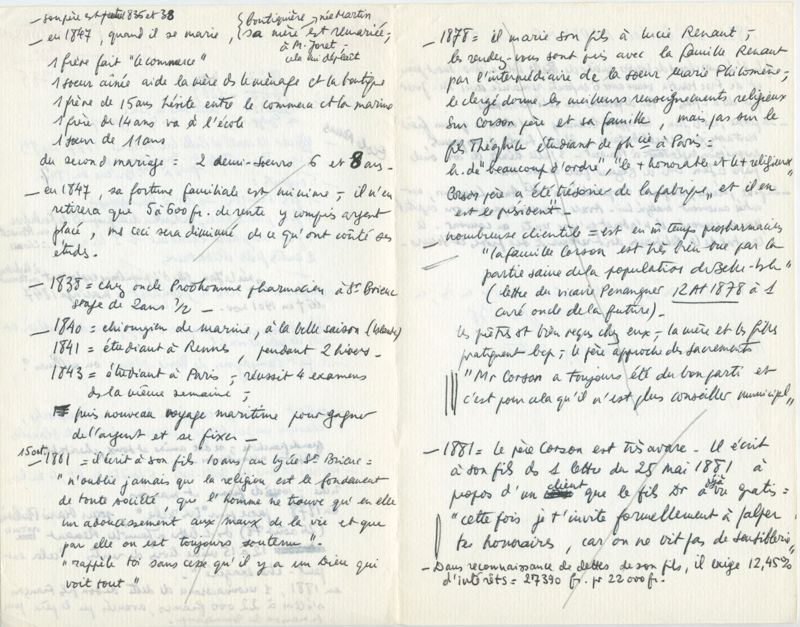 — son père est 1836 et 38
— en 1847, quand il se marie, {boutiquière, née Martin
sa mère est remariée,
à M. Joret —
cela lui déplaît
1 frère fait "le commerce"
1 soeur aînée aide la mère ds le ménage et la boutique
1 frère de 15 ans hésite entre le commerce et la marine
1 frère de 14 ans va à l'école
1 soeur de 11 ans
du second mariage = 2 demi-soeurs 6 et 8 ans —
— en 1847, sa fortune familiale est minime ; il n'en
retirera que 5 à 600 fr. de rente y compris argent
placé, ms ceci sera diminué de ce qu'ont coûté ses
études.
— 1838 = chez oncle Prodhomme pharmacien à St Brieuc
stage de 2 ans ½ —
— 1840 = chirurgien de marine, à la belle saison
1841 = étudiant à Rennes, pendant 2 hivers —
1843 = étudiant à Paris ; réussit 4 examens
ds la même semaine ;
puis nouveau voyage maritime pour gagner
de l'argent et se fixer —
15 oct
— 1861 = il écrit à son fils 10 ans au lycée St Brieuc =
"n'oublie jamais que la religion est le fondement
de toute société que l'homme ne trouve qu'en elle
un adoucissement aux maux de la vie et que
par elle on est toujours soutenu"
"rappelle toi sans cesse qu'il y a un Dieu qui
voit tout"
— 1878 = il marie son fils à Lucie Renaut ;
les rendez-vous sont pris avec la famille Renaut
par l'intermédiaire de la soeur Marie Philomène ;
le clergé donne les meilleurs renseignements religieux
sur Corson père et sa famille, mais pas sur le
fils Théophile étudiant de phcie à Paris =
h. de "beaucoup d'ordre", "très honorable et très religieux"
Corson père "a été trésorier de la fabrique, et il en
est le président" —
nombreuse clientèle = est en m temps propharmacien
— "la famille Corson est très bien vue par la
partie saine de la population de Belle-Isle"
(lettre du vicaire Penanguer 12 At 1878 à 1
curé oncle de la future) —
les prêtres st bien reçus chez eux ; la mère et les filles
pratiquent bcp ; le père approche des sacrements
"Mr Corson a toujours été du bon parti et
c'est pour cela qu'il n'est plus conseiller municipal"
— 1881 = le père Corson est très avare — Il écrit
à son fils ds 1 lettre du 25 mai 1881 à
propos d'un client que le fils Dr a déjà vu gratis =
"cette fois je t'invite formellement à
tes honoraires, car on ne vit pas de"
— Dans reconnaissance de dettes de son fils, il exige 12,45%
d'intérêts = 27390 fr. pr 22000 fr.